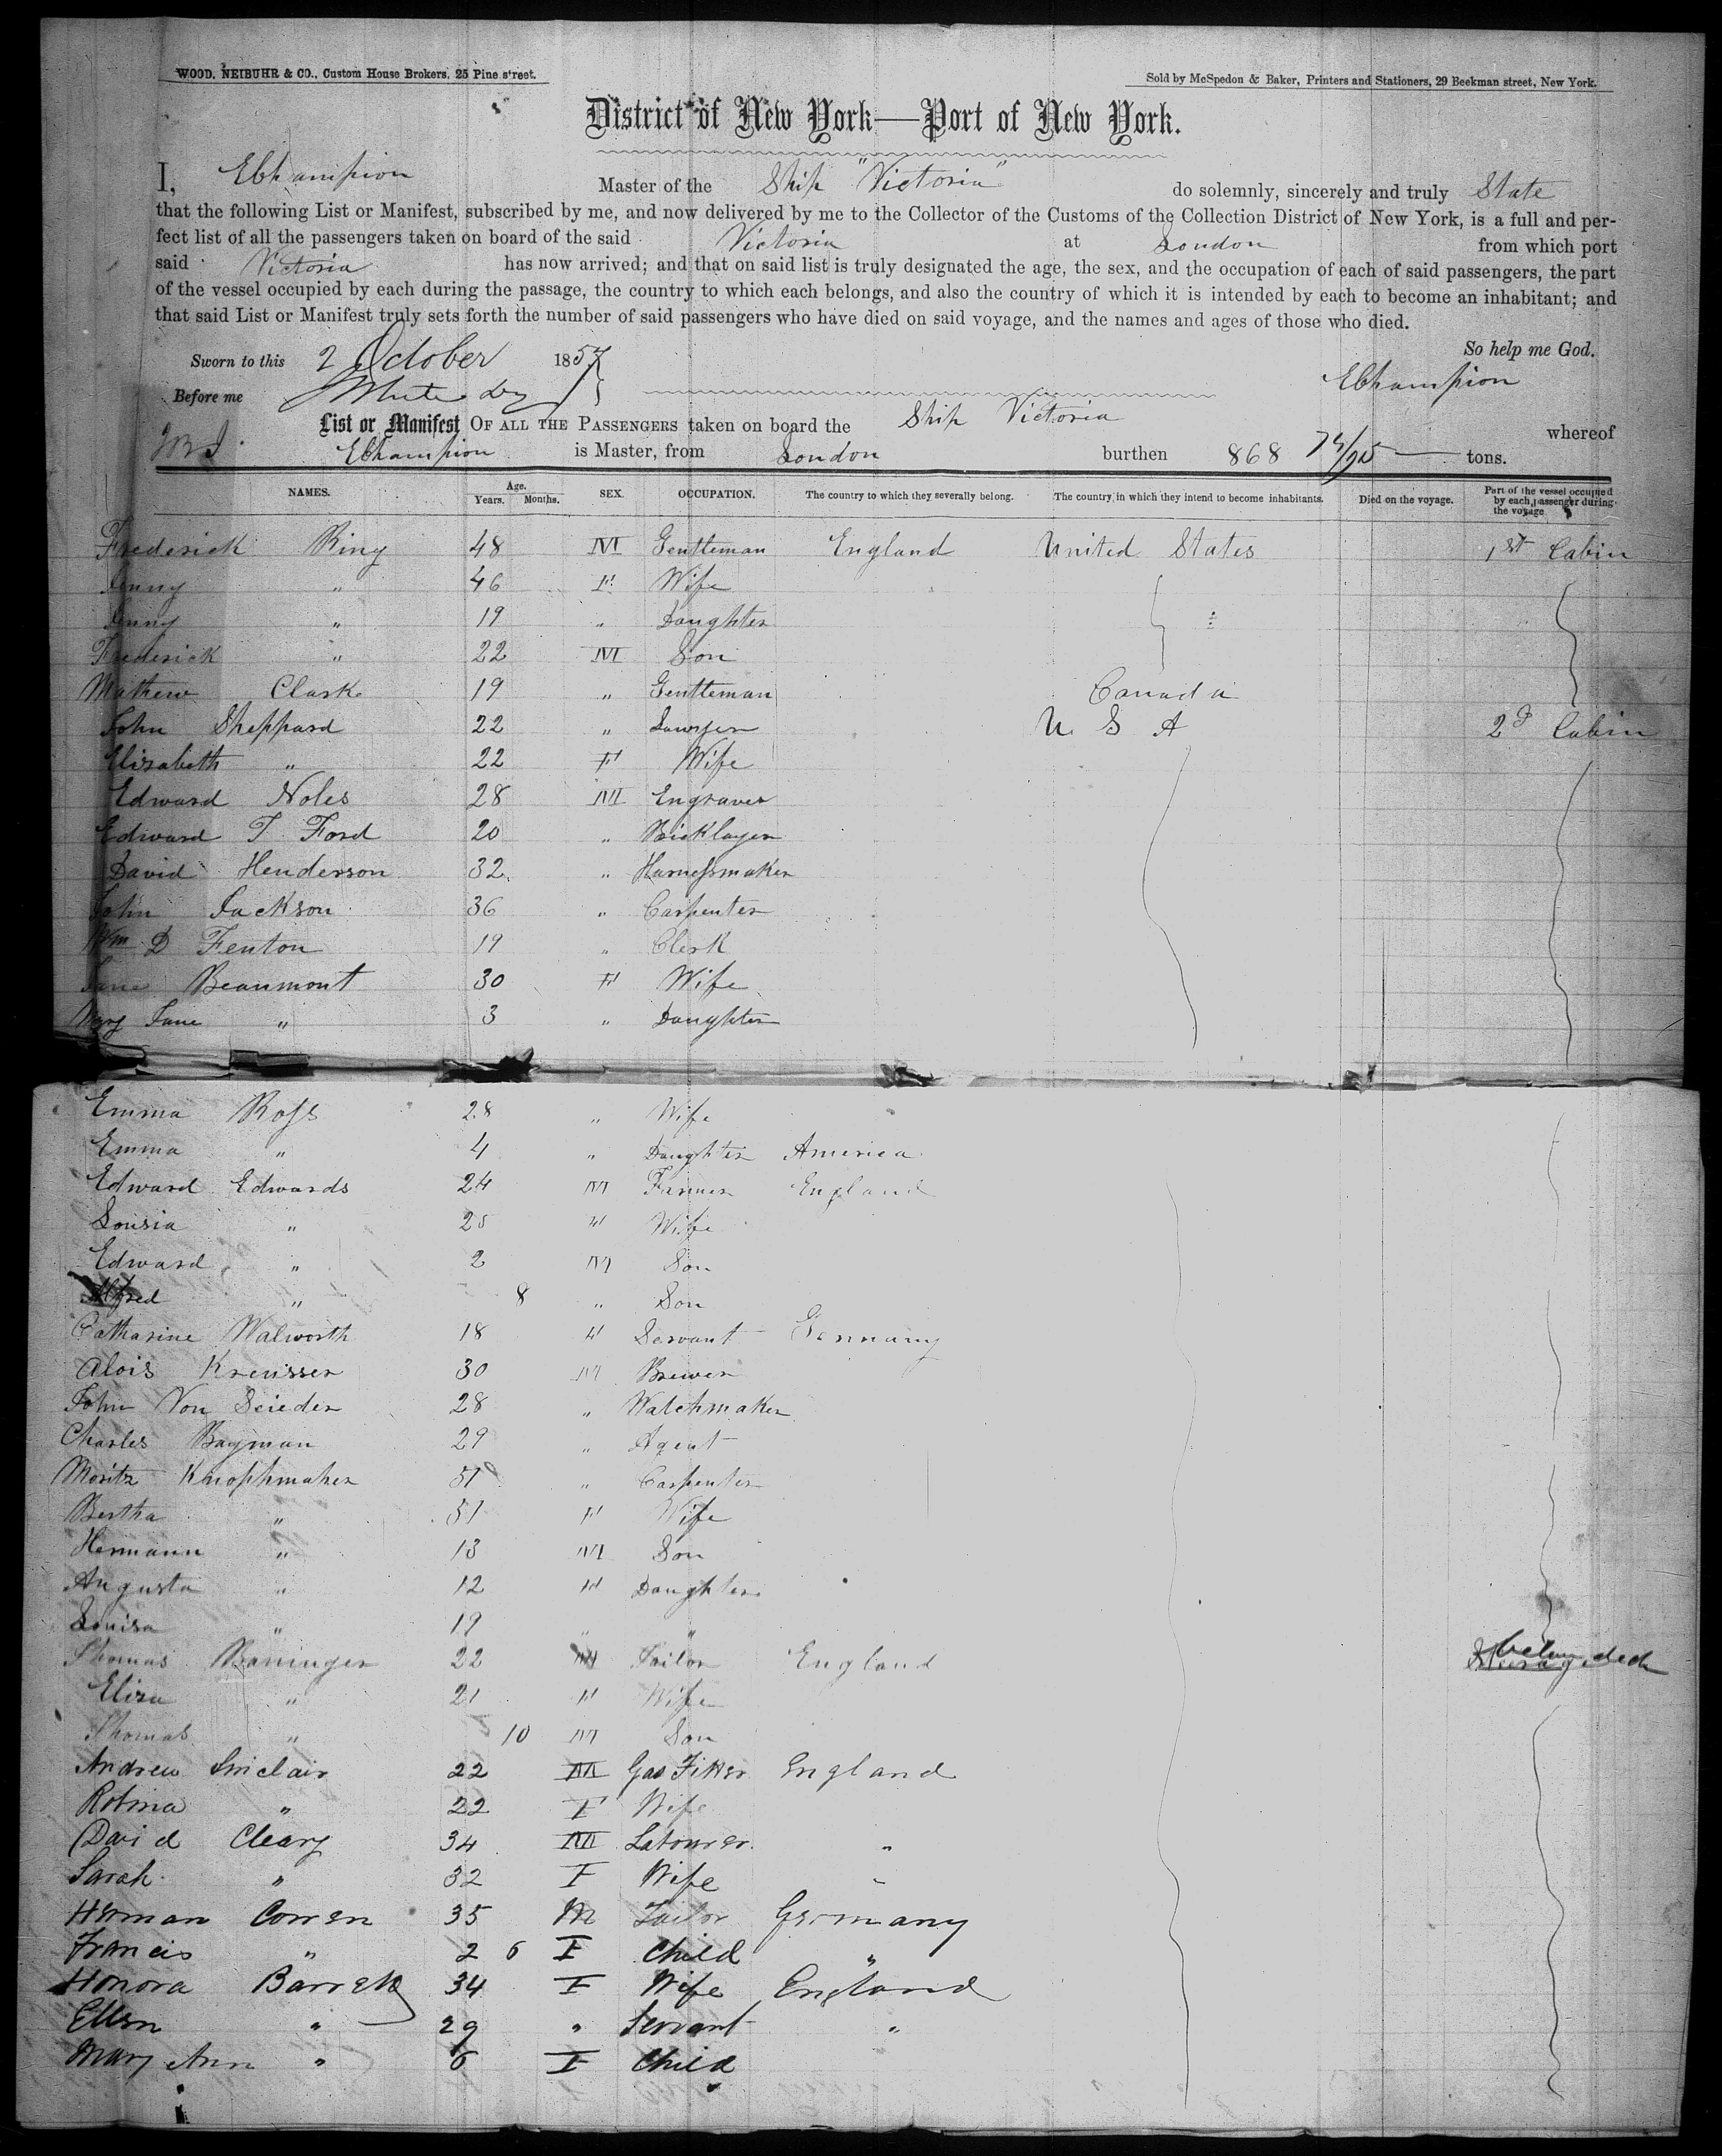 WOOD, NEIBUHR & CO., Custom House Brokers, 25 Pine street.
Sold by McSpedon & Baker, Printers and Stationers, 29 Beekman street, New York.
District of New York—Port of New York.
I, EChampion Master of the Ship "Victoria" do solemnly, sincerely and truly State
that the following List or Manifest, subscribed by me, and now delivered by me to the Collector of the Customs of the Collection District of New York, is a full and per-
fect list of all the passengers taken on board of the said Victoria at London from which port
said Victoria has now arrived; and that on said list is truly designated the age, the sex, and the occupation of each of said passengers, the part
of the vessel occupied by each during the passage, the country to which each belongs, and also the country of which it is intended by each to become an inhabitant; and
that said List or Manifest truly sets forth the number of said passengers who have died on said voyage, and the names and ages of those who died.
So help me God.
Sworn to this 2 October 1857
EChampion
Before me
List or Manifest OF ALL THE PASSENGERS taken on board the Ship Victoria whereof
EChampion is Master, from London burthen 868 tons.
NAMES. Age. Years. Months. SEX. OCCUPATION. The country to which they severally belong. The country in which they intend to become inhabitants. Died on the voyage. Part of the vessel occupied by each passenger during the voyage
Frederick Ring 48 M Gentleman England United States 1st Cabin
" 46 F Wife
" 19 " Daughter
Frederick " 22 M Son
Mathew Clark 19 " Gentleman Canada
John Sheppard 22 " Sawyer U S A 2d Cabin
Elizabeth " 22 F Wife
Edward Noles 28 M Engraver
Edward T. Ford 20 " Bricklayer
David Henderson 32 " Harnessmaker
John Jackson 36 " Carpenter
Wm D Fenton 19 " Clerk
Jane Beaumont 30 F Wife
Mary Jane " 3 " Daughter
Emma Ross 28 " Wife
Emma " 4 " Daughter America
Edward Edwards 24 M Farmer England
Lousia " 25 F Wife
Edward " 2 M Son
Alfred " 8 " Son
Catharine Walworth 18 F Servant Germany
Alois Kreusser 30 M Brewer
John Von Seieder 28 " Watchmaker
Charles Bayman 29 " Agent
Moritz Knophmaker 51 " Carpenter
Bertha " 51 F Wife
Hermann " 13 M Son
Augusta " 12 F Daughter
Louisa " 19 " "
Thomas Baninger 22 M Tailor England below deck
Eliza " 21 F Wife
Thomas " 10 M Son
Andrew Sinclair 22 M Gas Fitter England
Robina " 22 F Wife
David Cleary 34 M Labourer "
Sarah " 32 F Wife "
Herman Corren 35 M Tailor Germany
Francis " 2 6 F Child "
Honora Barrett 34 F Wife England
Ellen " 29 " Servant "
Mary Ann " 6 F Child